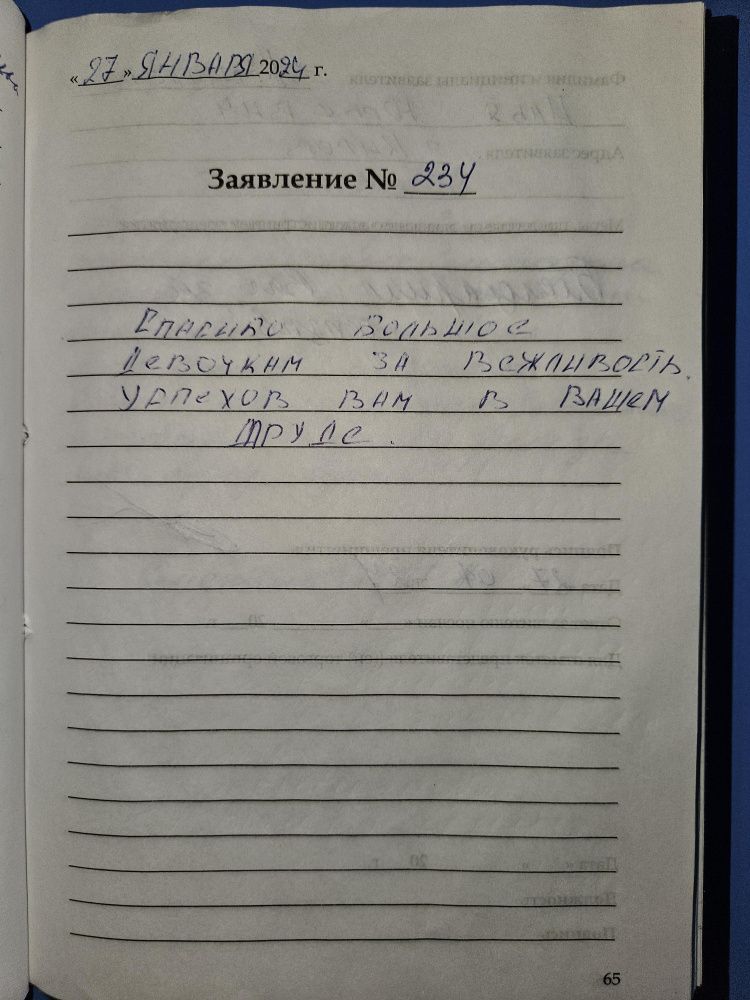 «27» ЯНВАРЯ 2024 г.
Заявление № 234
Спасибо большое
девочкам за вежливость.
Успехов вам в вашем
труде.
65